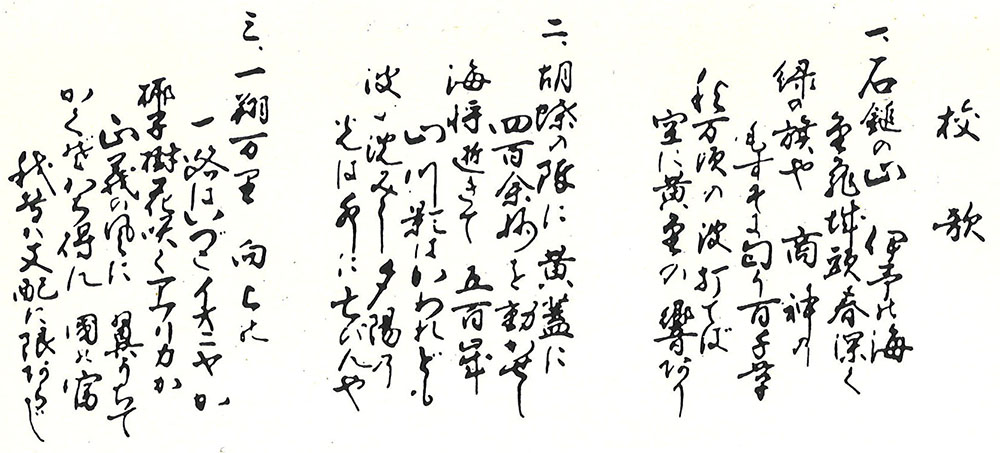 校歌
一、石鎚の山 伊予の海
金亀城頭春深く
緑の旗や 商神の
もすそに匂う百千草
秋万頃の波打てば
空に黄金の響あり
二、胡蝶の陣に 黄蓋に
四百余州を動かせし
海将逝きて 五百年
山川影はかわれども
波に沈みし夕陽の
光は永に亡びんや
三、一翔万里 向上の
一路はいづこ
椰子樹花咲くアフリカか
正義の風に 翼うちて
かくぞかち得ん 国の富
我等が支配に限あらじ